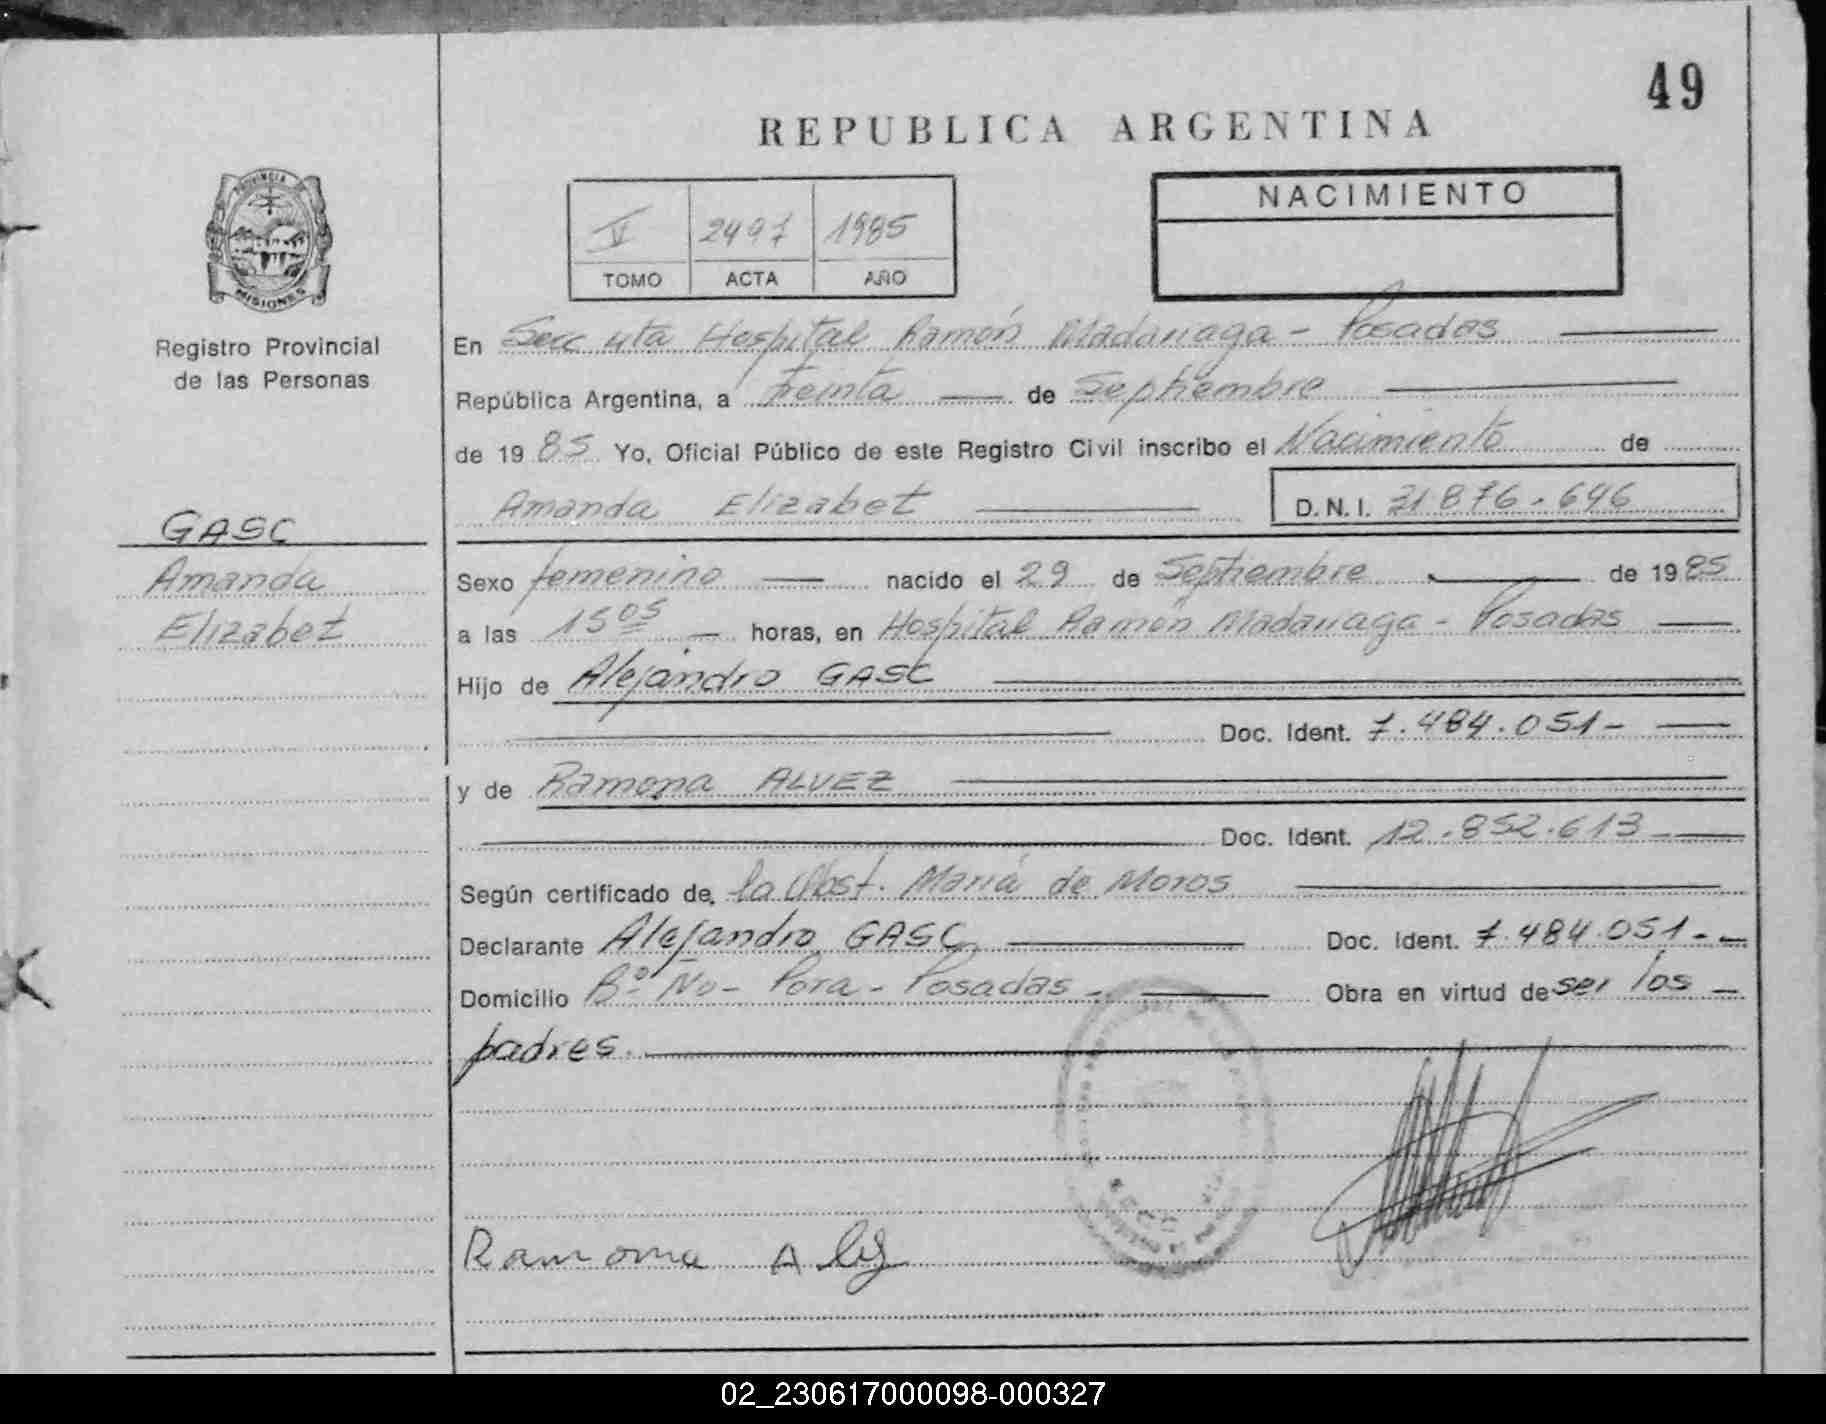 49
REPUBLICA ARGENTINA
PROVINCIA DE
MISIONES
Registro Provincial
de las Personas
V 2497 1985
TOMO ACTA AÑO
NACIMIENTO
En Secc 4ta Hospital Ramón Madariaga - Posadas
República Argentina, a Treinta de Septiembre
de 1985 Yo, Oficial Público de este Registro Civil inscribo el Nacimiento de
Amanda Elizabet D.N.I. 31.876.646
GASC
Amanda
Elizabet
Sexo femenino nacido el 29 de Septiembre de 1985
a las 15 05 horas, en Hospital Ramón Madariaga - Posadas
Hijo de Alejandro GASC
Doc. Ident. 7.484.051-
y de Ramona ALVEZ
Doc. Ident. 12.852.613-
Según certificado de, la Obst. María de Moros
Declarante Alejandro GASC Doc. Ident. 7.484.051-
Domicilio Bº Ño- Pora - Posadas - Obra en virtud de ser los
padres.
Ramona
02_230617000098-000327